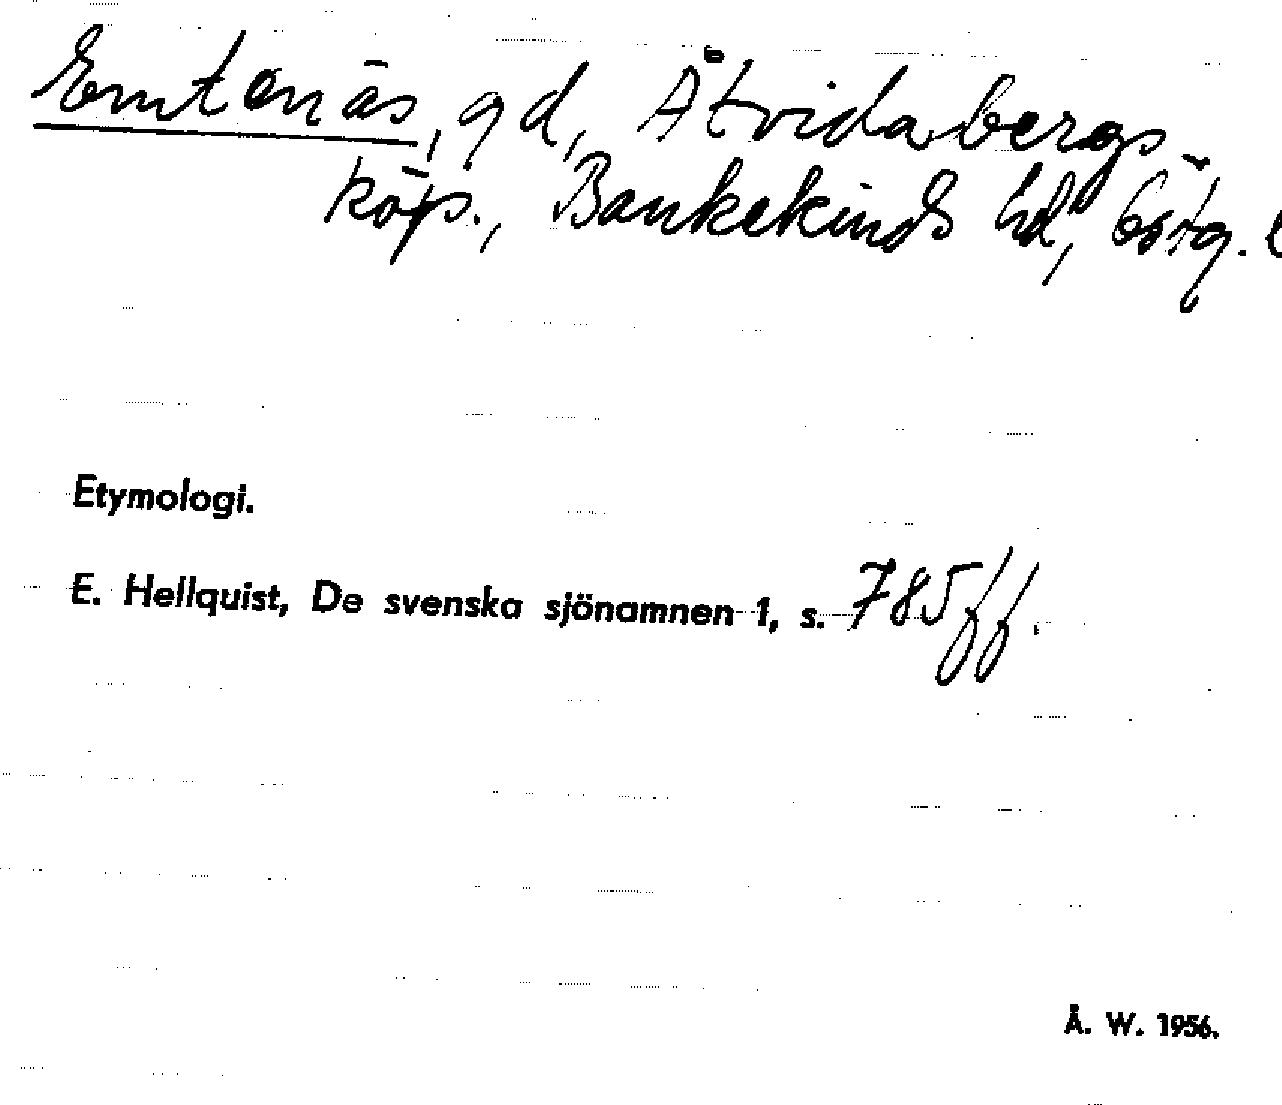 Emtenäs, gd, Åtvidabergs
köp., Bankekinds hd, Östg.
Etymologi.
E. Hellquist, De svenska sjönamnen 1, s. 785 ff.
Å. W. 1956.